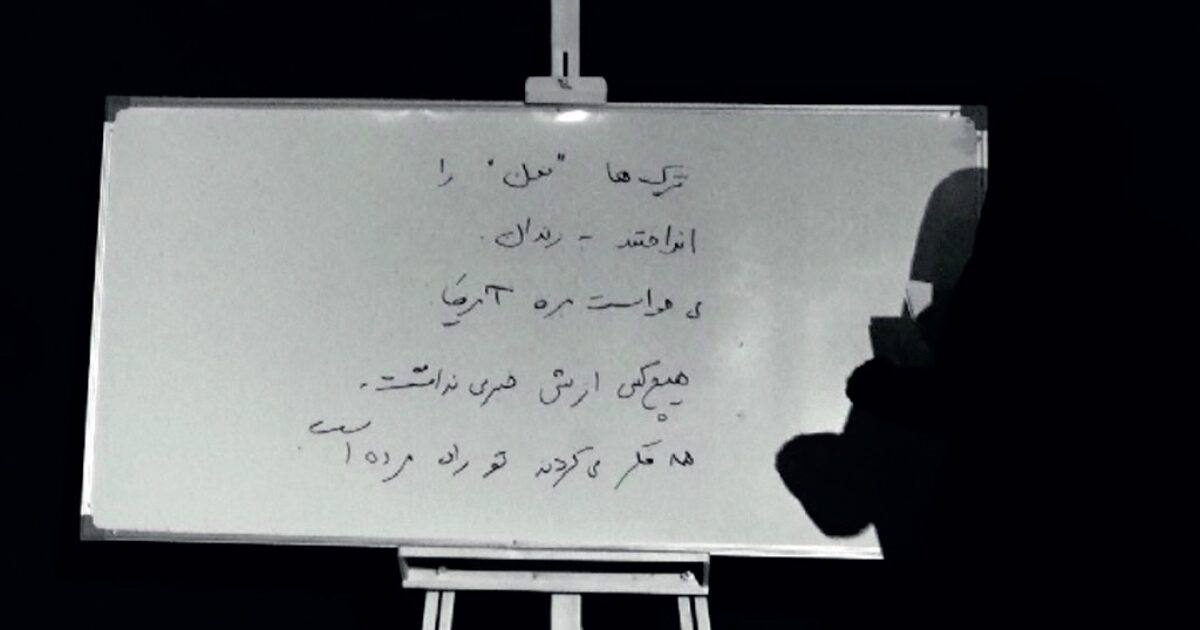 ترک ها "معین" را
انداختند - زندان.
می خواست بره آمریکا
هیچ کس ازش خبری نداشت.
همه فکر می کردند تو راه مرده است.